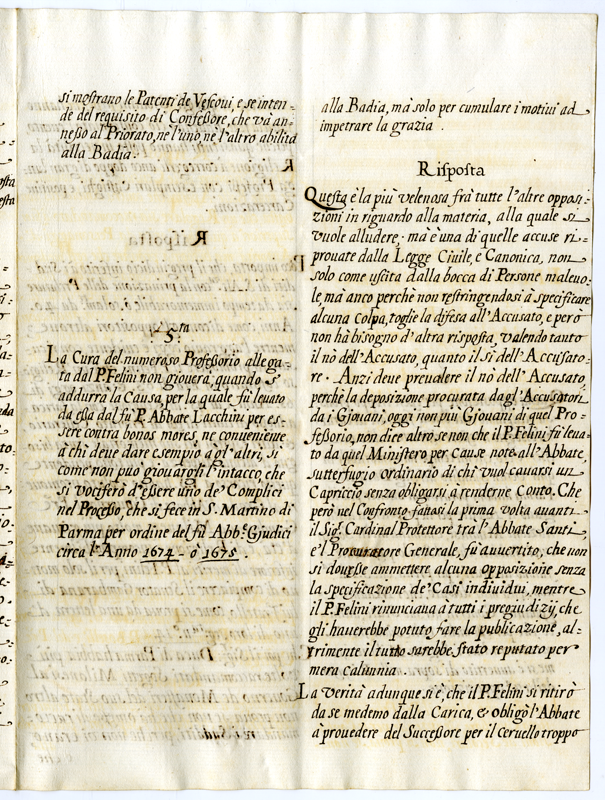 si mostrano le Patenti de Vescoui, e se inten=
de del requisito di Confeßore, che và an=
neßo al Priorato, ne l'uno, ne l'altro abilita
alla Badia.
5.ta
La Cura del numeroso Profeßorio allega=
ta dal P. Felini non giouerà, quando s'
addurrà la Causa, per la quale fù leuato
da eßa dal fù P. Abbate Lacchini per es=
sere contra bonos mores, ne conueniente
à chi deue dare esempio à gl'altri, si
come non può giouargli l'intacco, che
si vociferò d'eßere uno de' Complici
nel Proceßo, che si fece in S. Martino di
Parma per ordine del fù Abb.e Giudici
circa l'Anno 1674 - ò 1675.
alla Badia, mà solo per cumulare i motiui ad
impetrare la grazia.
Risposta
Questa è la più velenosa frà tutte l'altre opposi=
zioni in riguardo alla materia, alla quale si
vuole alludere; mà è una di quelle accuse ri=
prouate dalla Legge Ciuile, e Canonica, non
solo come uscita dalla bocca di Persone maleuo=
le, mà anco perchè non restringendosi à specificare
alcuna Colpa, toglie la difesa all'Accusato, e però
non hà bisogno d'altra risposta, valendo tanto
il nò dell'Accusato, quanto il sì dell'Accusato=
re. Anzi deue preualere il nò dell'Accusato,
perchè la deposizione procurata da gl'Accusatori
da i Giouani, oggi non più Giouani di quel Pro=
feßorio, non dice altro se non che il P. Felini fù leua=
to da quel Ministero per Cause note all'Abbate,
sutterfugio ordinario di chi vuol cauarsi un
Capriccio senza obligarsi à renderne Conto. Che
però nel Confronto fattosi la prima volta auanti
il Sig.r Cardinal Protettore trà l'Abbate Santi,
e'l Procuratore Generale, fù auuertito, che non
si doueße ammettere alcuna opposizione senza
la specificazione de' Casi indiuidui, mentre
il P. Felini rinunciaua à tutti i pregiudizij, che
gli hauerebbe potuto fare la publicazione, al=
trimente il tutto sarebbe stato reputato per
mera calunnia.
La verità adunque si è, che il P. Felini si ritirò
da se medemo dalla Carica, & obligò l'Abbate
à prouedere del Succeßore per il Ceruello troppo